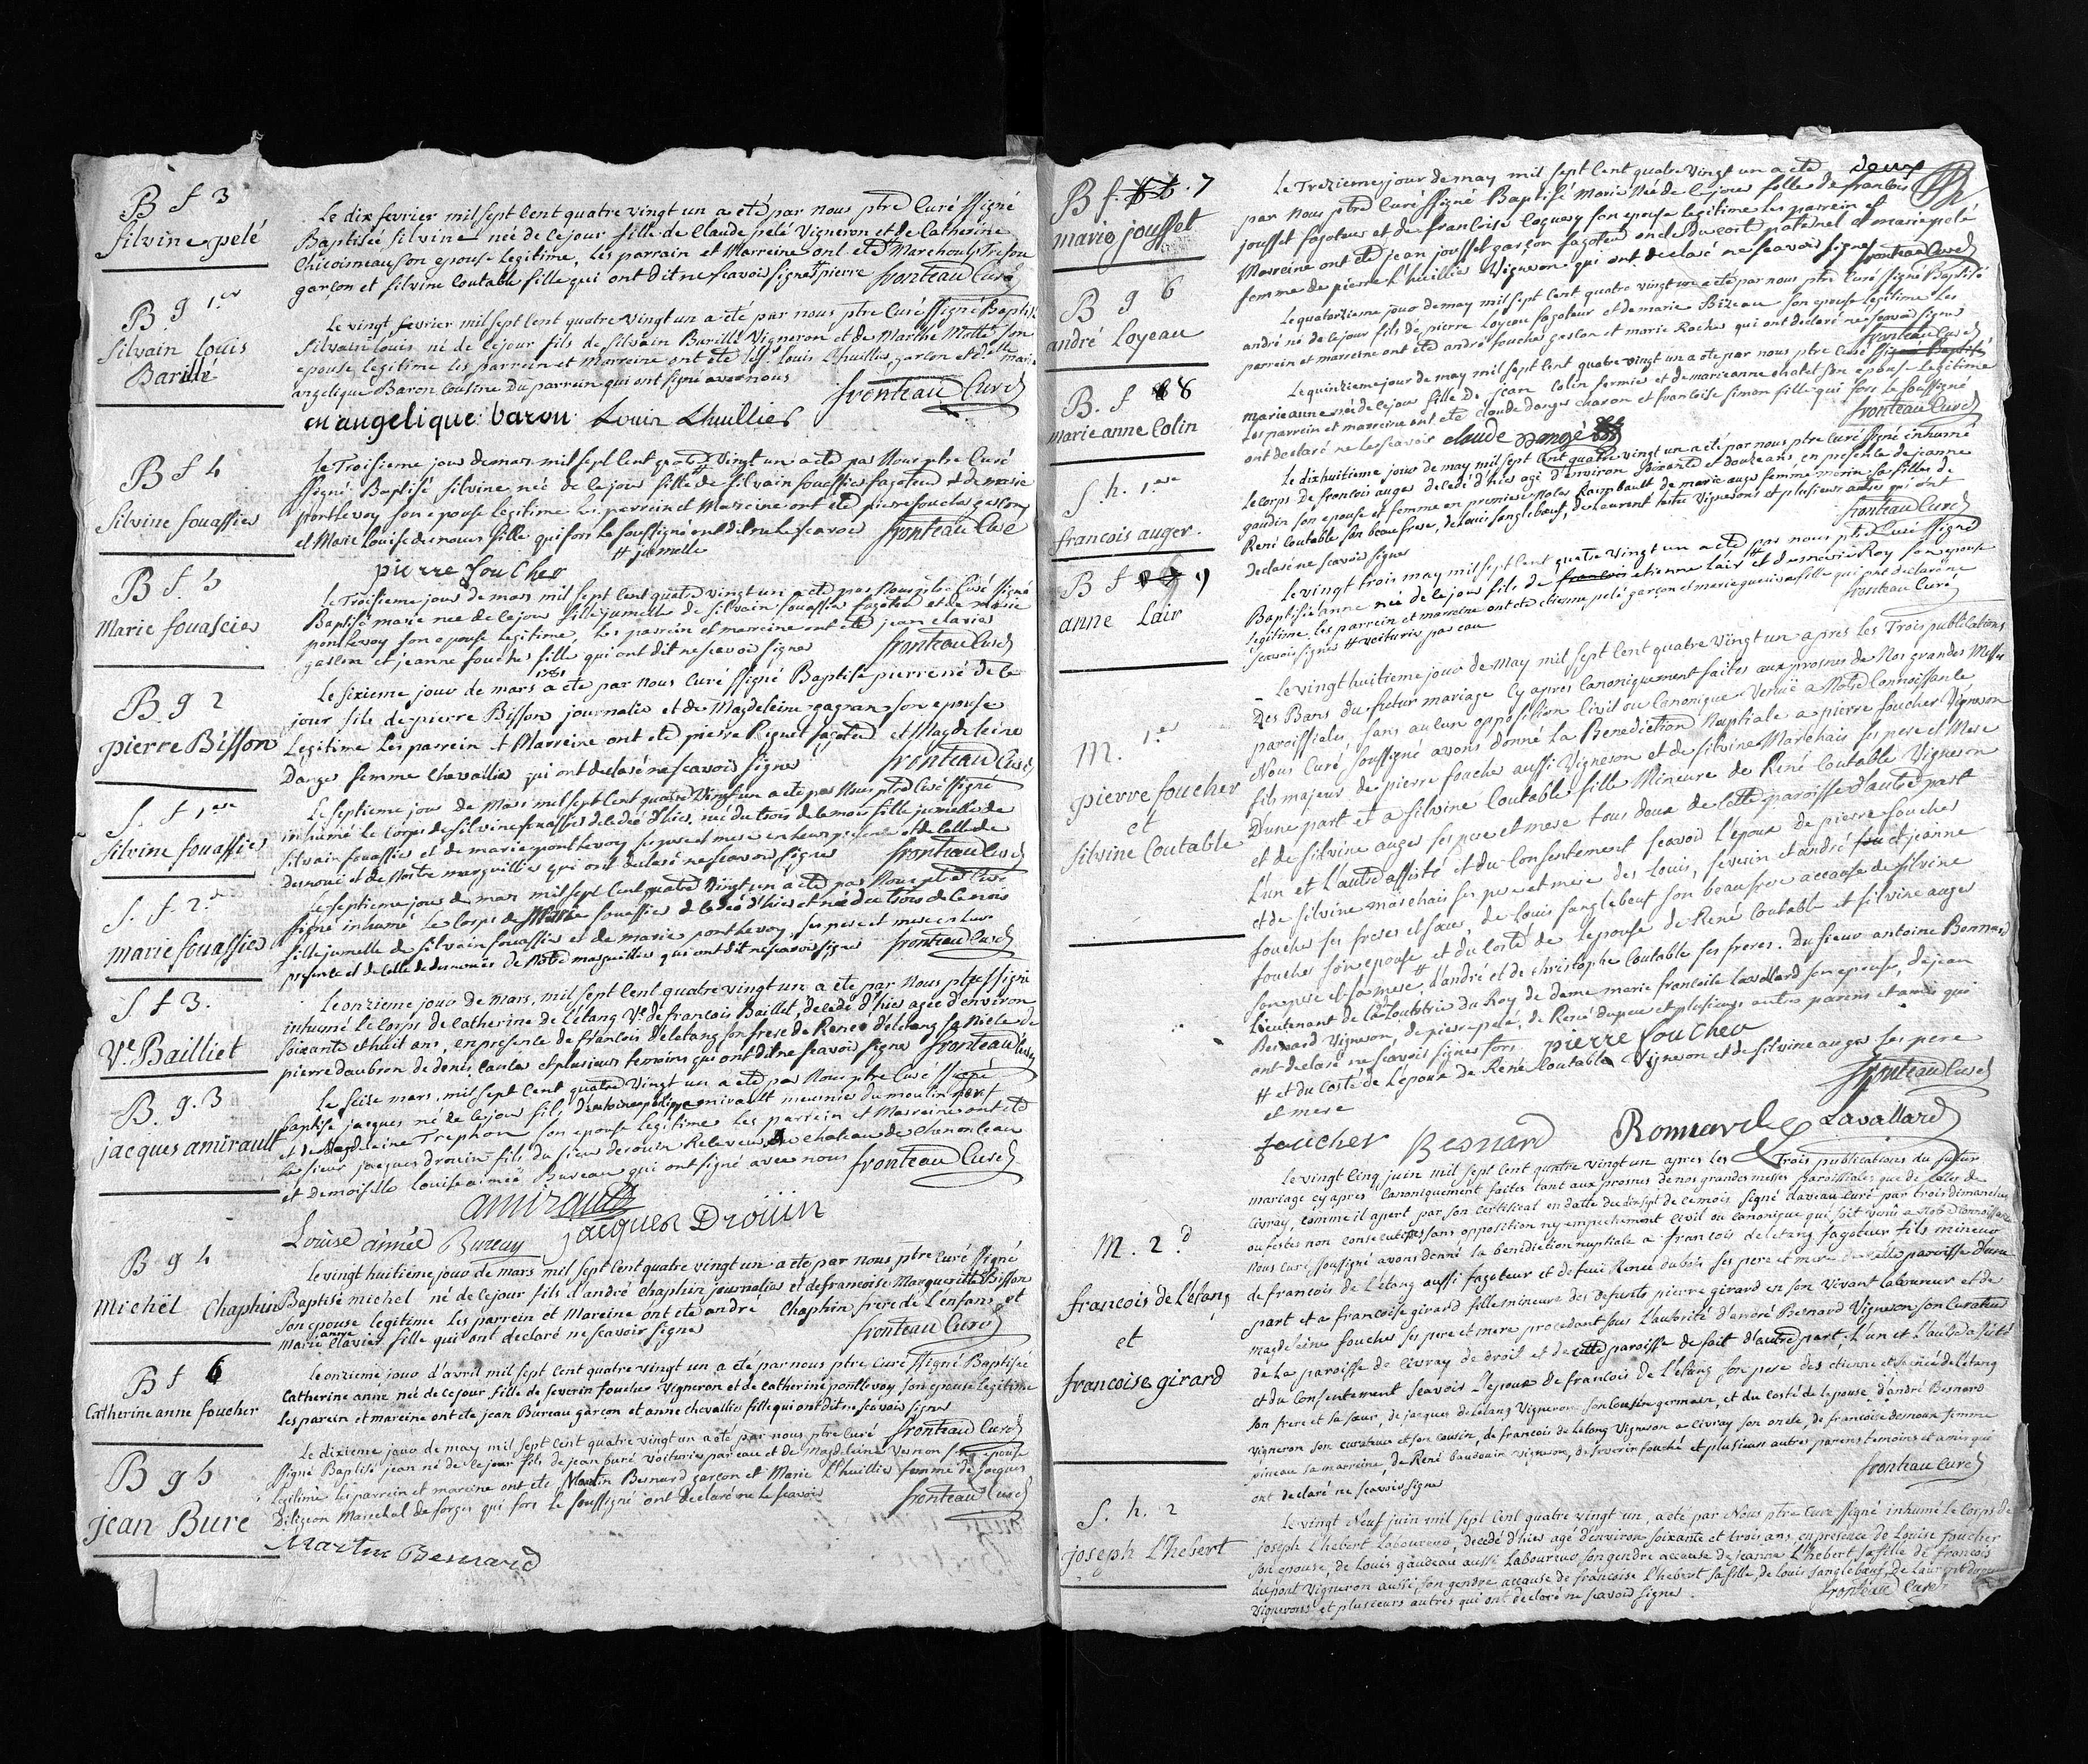 B f 3
Silvine pelé
Le dix fevrier mil sept Cent quatre vingt un a eté par nous ptre Curé ssigné
Baptisée Silvine née de Ce jour fille de Claude pelé Vigneron et de Catherine
Chicoisneau son epouse legitime, les parrain et Marreine ont eté Marchoul Treson
garçon et Silvine Coutable fille qui ont dit ne scavoir signer pierre fronteau Curé
B. g 1.er
Silvain Louis
Barillé
Le vingt fevrier mil sept Cent quatre vingt un a eté par nous ptre Curé ssigné Baptisé
Silvain Louis né de Ce jour fils de Silvain Barillé Vigneron et de Marthe Motté son
epouse legitime les parrein et Marreine ont eté Louis Lhuillier garçon et d.elle marie
angelique Baron Cousine du parrein qui ont signé avec nous fronteau Curé
m angelique baron Louis Lhuillier
B f 4
Silvine fouassier
Le Troisieme jour de mars mil sept Cent quatre Vingt un a eté par Nous ptre Curé
ssigné Baptisé Silvine née de Ce jour fille # de Silvain fouassier fagoteur et de marie
pontlevoy son epouse legitime les parrein et Mareine ont eté pierre foucher garçon
et Marie Louise desnoues fille qui fors le soussigné ont dit ne le scavoir fronteau Curé
# jumelle
pierre foucher
B f. 5
Marie fouascier
Le Troisieme jour de mars mil sept Cent quatre vingt un a eté par Nous ptre Curé ssigné
Baptisé marie née de Ce jour fille jumelle de Silvain fouassier fagoteur et de marie
pontlevoy son epouse legitime, les parrein et marreine ont eté jean clavier
garcon et jeanne foucher fille qui ont dit ne scavoir signer fronteau Curé
B. g 2
pierre Bisson
1781
Le sixieme jour de mars a eté par nous Curé ssigné Baptisé pierre né de Ce
jour fils de pierre Bisson journalier et de Magdeleine gagnan son epouse
Legitime les parrein et Marreine ont eté pierre Piquet fagoteur et Magdeleine
Danger femme Chevallier qui ont declaré ne scavoir signer fronteau Curé
S. f 1.ere
Silvine fouassier
Le septieme jour de Mars mil sept Cent quatre Vingt un a eté par Nous ptre Curé ssigné
inhumé le Corps de Silvine fouassier decedée d'hier, née du trois de Ce mois fille jumelle de
Silvain fouassier et de marie pontlevoy ses pere et mere en leur presence et de Celle de
desnoues et de Noste marguillier qui ont declaré ne scavoir signer fronteau Curé
S. f. 2.e
marie fouassier
Le septieme jour de mars mil sept Cent quatre Vingt un a eté par Nous ptre Curé
ssigné inhumé le Corps de Marie fouassier decedée d'hier et née du trois de Ce mois
fille jumelle de Silvain fouassier et de marie pontlevoy ses pere et mere en leur
presence et de Celle de desnoues de Noste marguillier qui ont dit ne scavoir signer fronteau Curé
S f 3.
V.e Bailliet
Le onzieme jour de Mars, mil sept Cent quatre vingt un a eté par Nous ptre ssigné
inhumé le Corps de Catherine de l'étang V.e de francois Baillet, decedé d'hier agée d'environ
soixante et huit ans, en presence de francois delétang son frere de Renée delétang sa Niece de
pierre daubron de denis Caslès et plusieurs temoins qui ont dit ne scavoir signer fronteau Curé
B. g. 3
jacques amirault
Le seise mars, mil sept Cent quatre Vingt un a eté par Nous ptre Curé ssigné
baptisé jacques né de Ce jour fils d'antoine philippe amirault meunier du moulin
et de Magdeleine Trephon son epouse legitime les parrein et Marreine ont eté
le sieur jacques drouin fils du sieur derouin Releveur du chateau de Chenonceau
et demoiselle Louise aimée Bureau qui ont signé avec nous fronteau Curé
amirault
Louise aimée Bureau jacques Drouin
B g 4
Michël Chaphin
Le vingt huitième jour de mars mil sept Cent quatre vingt un a eté par nous, ptre Curé ssigné
Baptisé michel né de Ce jour fils d'andré Chaphin journalier et de francoise Margueritte Bisson
son epouse legitime les parrein et Mareine ont eté andré Chaphin frere de l'enfant et
Marie anne Clavier fille qui ont declaré ne scavoir signer fronteau Curé
B f 6
Catherine anne foucher
Le onzieme jour d'avril mil sept Cent quatre vingt un a eté par nous ptre Curé ssigné Baptisée
Catherine anne née de Ce jour, fille de severin foucher Vigneron et de Catherine pontlevoy son epouse legitime
les parein et mareine ont eté jean Bureau garçon et anne chevallier fille qui ont dit ne scavoir signer
fronteau Curé
B g 5
jean Bure
Le dixieme jour de may mil sept Cent quatre vingt un a eté par nous ptre Curé
ssigné Baptisé jean né de Ce jour fils de jean Buré voiturier par eau et de Magdeleine Vernon son epouse
legitime les parrein et mareine ont eté Martin Besnard garçon et Marie L'huillier femme de jacques
Diligeon Marechal de forges qui fors le soussigné ont declaré ne le scavoir fronteau Curé
Martin Besnard
deux
B f. 7
marie jousset
Le Trezieme jour de may mil sept Cent quatre Vingt un a eté
par Nous ptre Curé ssigné Baptisé Marie Née de Ce jour fille de francois
jousset fagoteur et de francoise Coquery son epouse legitime les parrein et
Marreine ont eté jean jousset garçon fagoteur oncle du Coté paternel et marie pelé
femme de pierre L'huillier Vigneron qui ont declaré ne scavoir signer fronteau Curé
B g 6
andré Loyeau
Le quatorzieme jour de may mil sept Cent quatre vingt un a eté par nous ptre Curé ssigné Baptisé
andré né de Ce jour fils de pierre Loyeau fagoteur et de marie Bizeau son epouse legitime les
parrein et marreine ont eté andré foucher garcon et marie Rocher qui ont declaré ne scavoir signer
fronteau Curé
B. f 8
marie anne Colin
Le quinzieme jour de may mil sept Cent quatre vingt un a eté par nous ptre Curé ssigné Baptisé
marie anne née de Ce jour fille de jean Colin fermier et de marie anne Chatet son epouse legitime
Les parrein et marreine ont eté claude danger charon et francoise simon fille qui fors le soussigné
ont declaré ne le scavoir claude dangé fronteau Curé
S. h. 1.ere
francois auger.
Le dix huitieme jour de may mil sept Cent quatre vingt un a eté par nous ptre Curé ssigné inhumé
le Corps de francois auger decedé d'hier agé d'environ soixante et douze ans en presence de jeanne
gaudin son epouse et femme en premiere Noces Raimbault de marie auger femme morin sa fille de
René Coutable son beau frere, de Louis Sanglebœuf, de Laurent Vigneron et plusieurs autres qui ont
declaré ne scavoir signer fronteau Curé
B f 9
anne Lair
Le vingt trois may mil sept Cent quatre Vingt un a eté par nous ptre Curé ssigné
Baptisée anne née de Ce jour fils de francois etienne Lair # et de marie Roy son epouse
legitime, les parrein et marreine ont eté etienne pelé garçon et marie fille qui ont declaré ne
scavoir signer # voiturier par eau fronteau Curé
M. 1.er
pierre foucher
et
Silvine Coutable
Le vingt huitieme jour de May mil sept Cent quatre Vingt un apres les Trois publications
Des Bans du futur mariage Cy apres Canoniquement faites aux prosnes de Nos grandes Messes
paroissiales, sans aucun opposition Civil ou Canonique Venuë a Notre Connoissance
Nous Curé soussigné avons donné la Benediction Nuptiale a pierre foucher Vigneron
fils majeur de pierre foucher aussi Vigneron et de Silvine Marchais ses pere et Mere
D'une part et a Silvine Coutable fille Mineure de René Coutable Vigneron
et de Silvine auger ses pere et mere tous deux de Cette paroisse d'autre part
L'un et L'autre assisté et du Consentement scavoir L'epoux de pierre foucher
et de Silvine marchais ses pere et mere des Louis, severin et andré fou et jeanne
foucher ses freres et sœur, de Louis Sanglebeuf son beaufrere accause de Silvine
foucher son epouse et du Costé de Lepouse de René Coutable et Silvine auger
son pere et sa mere, # d'andré et de Christophe Coutable ses freres. Du sieur antoine Bonnard
Lieutenant de la Louvetrie du Roy de dame marie francoise Lavallard son epouse, de jean
Besnard Vigneron, de pierre pelé, de René dupeu et plusieurs autres parens et amis qui
ont declaré ne scavoir signer fors pierre foucher
# et du Costé de L'epoux de René Coutable Vigneron et de Silvine auger ses pere
et mere fronteau Curé
foucher Besnard Bonnard Lavallard
M. 2.d
francois de L'étang
et
francoise girard
Le vingt Cinq juin mil sept Cent quatre vingt un apres les Trois publications du futur
mariage cy apres Canoniquement faites tant aux prosnes de nos grandes messes paroissiales que de Celles de
Civray, comme il apert par son Certificat en datte du dix sept de Ce mois signé daveau Curé par trois dimanches
ou festes non consecutives sans opposition ny empechement Civil ou canonique qui soit venû a Notre Connoissance
Nous Curé soussigné avons donné la benediction nuptiale a francois deletang fagoteur fils mineur
de francois de L'étang aussi fagoteur et de feue Renée dubois ses pere et mere de cette paroisse d'une
part et a francoise girard fille mineure des defunts pierre girard en son Vivant Laboureur et de
magdeleine foucher ses pere et mere procedant sous L'autorité d'andré Besnard Vigneron son Curateur
de La paroisse de Civray de droit et de cette paroisse de fait d'autre part, L'un et L'autre assisté
et du Consentement scavoir L'epoux de francois de L'étang son pere des etienne et Renée de L'étang
son frere et sa sœur, de jacques delétang Vigneron son Cousin germain, et du Costé de lepouse d'andré Besnard
vigneron son curateur et son cousin, de francois de Létang Vigneron a Civray son oncle, de francoise desnoux femme
pineau sa marreine, de René baudouin vigneron, de severin fouché et plusieurs autres parens temoins et amis qui
ont declaré ne scavoir signer fronteau Curé
S. h. 2
joseph L'hebert
Le vingt Neuf juin mil sept Cent quatre vingt un, a eté par Nous ptre Curé ssigné inhumé le Corps de
joseph L'hebert Laboureur, decedé d'hier agé d'environ soixante et trois ans en presence de Louise foucher
son epouse, de Louis gaudeau aussi Laboureur son gendre accause de jeanne L'hebert sa fille de francois
dupont Vigneron aussi son gendre accause de francoise L'hebert sa fille de Louis Sanglebœuf, de Laurent dupeu
vignerons et plusieurs autres qui ont declaré ne scavoir signer. fronteau Curé